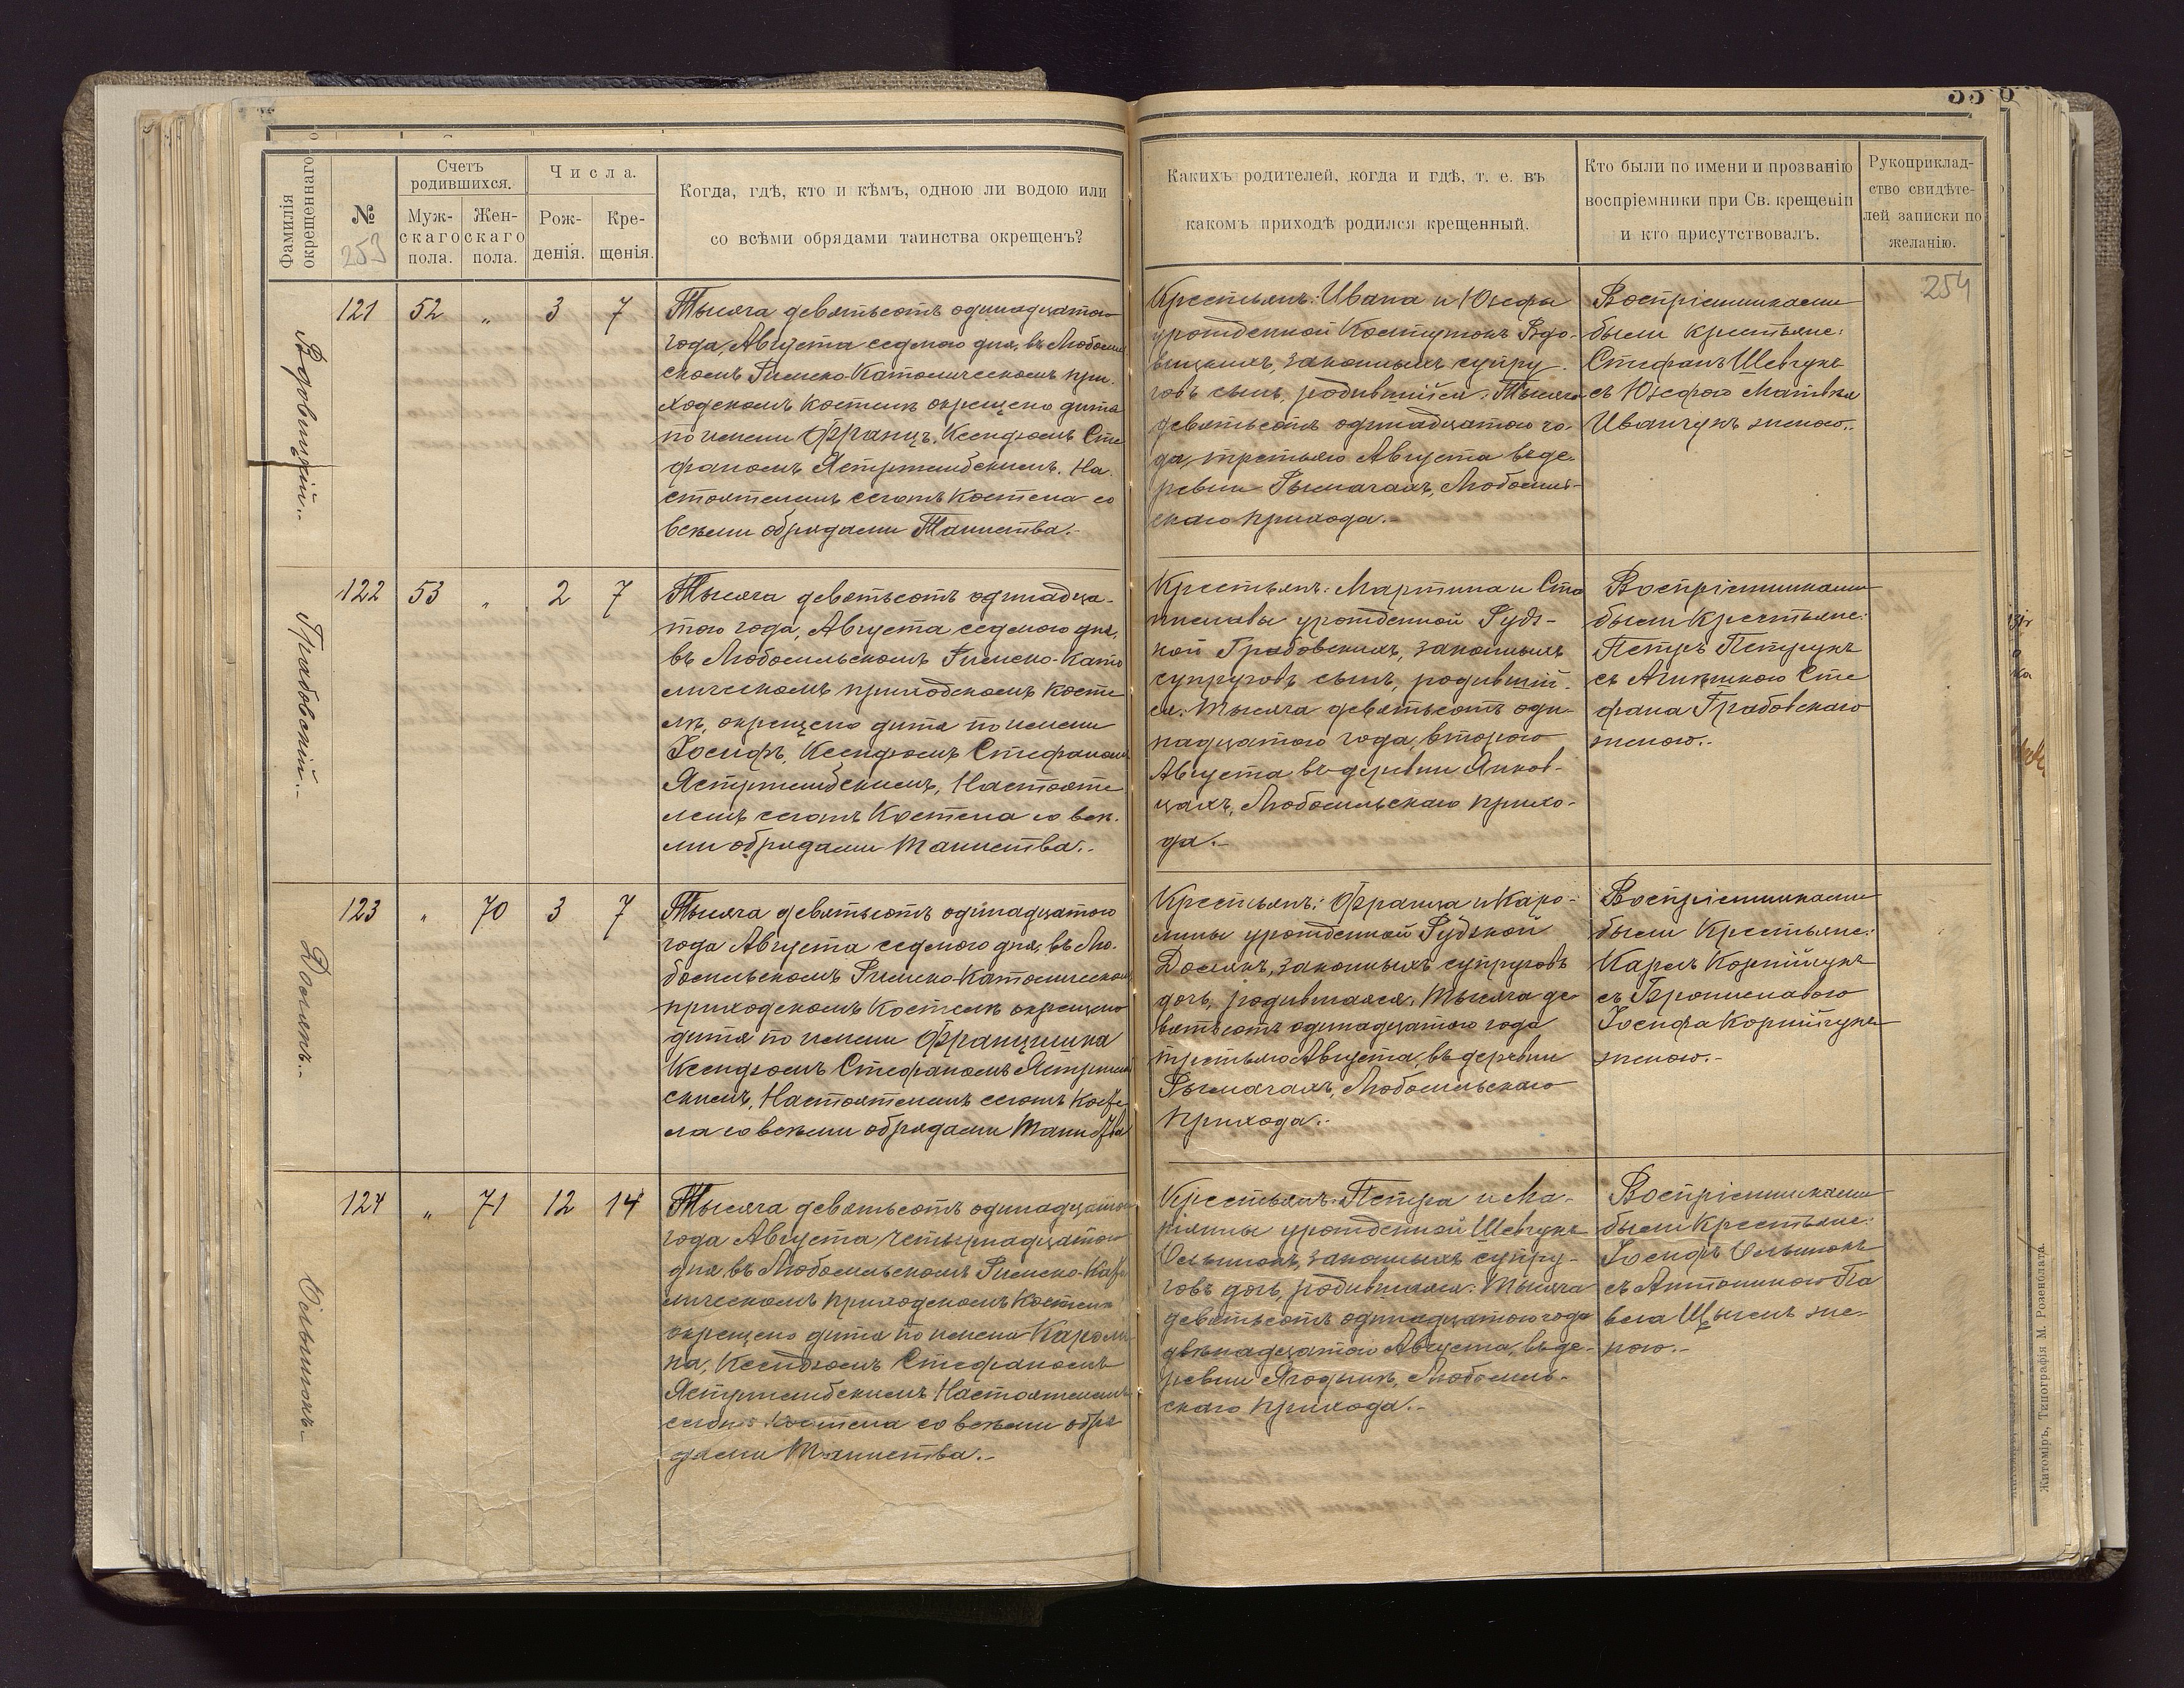 Фамилія
окрещеннаго
№
253
Счетъ
родившихся.
Муж-
скаго
пола.
Жен-
скаго
пола.
Числа.
Рож-
денія.
Кре-
щенія.
Когда, гдѣ, кто и кѣмъ, одною ли водою или
со всѣми обрядами таинства окрещенъ?
Какихъ родителей, когда и гдѣ, т. е. въ
какомъ приходѣ родился крещенный.
Кто были по имени и прозванію
воспріемники при Св. крещеніи
и кто присутствовалъ.
Рукоприклад-
ство свидѣте-
лей записки по
желанію.
254
Вдовицкій.-
121 52 „ 3 7
Тысяча девятьсотъ одинадцатого
года, Августа седмого дня, въ Любомль
скомъ Римско-Католическомъ при-
ходскомъ Костелѣ окрещено дитя
по имени Францъ, Ксендзомъ Сте
фаномъ Ястржембскимъ, На
стоятелемъ сегожъ Костела со
всѣми обрядами Таинства.-
Крестьянъ: Ивана и Юзефы
урожденной Колтунюкъ Вдо-
вицкихъ, законныхъ супру-
говъ сынъ, родившійся: Тысяча
девятьсотъ одинадцатого го-
да, третьяго Августа въ де-
ревни Рымачахъ, Любомль-
скаго прихода.-
Воспріемниками
были крестьяне:
Стефанъ Шевчукъ
съ Юзефою Матвѣя
Иванчукъ женою.-
Грабовскій.-
122 53 „ 2 7
Тысяча девятьсотъ одинадца-
того года, Августа седмого дня,
въ Любомльскомъ Римско-Като
лическомъ приходскомъ Косте
лѣ, окрещено дитя по имени
Іосифъ, Ксендзомъ Стефаномъ
Ястржембскимъ, Настояте
лемъ сегожъ Костела со всѣ-
ми обрядами Таинства.-
Крестьянъ: Мартина и Ста
ниславы урожденной Рудз-
кой Грабовскихъ, законныхъ
супруговъ сынъ, родившій-
ся: Тысяча девятьсотъ оди-
надцатого года, второго
Августа въ деревни Янков-
цахъ, Любомльскаго прихо-
да.-
Воспріемниками
были Крестьяне:
Петръ Петрукъ
съ Агнѣшкою Сте
фана Грабовскаго
женою.-
Долякъ.-
123 „ 70 3 7
Тысяча девятьсотъ одинадцатого
года Августа седмого дня, въ Лю-
бомльскомъ Римско-Католическомъ
приходскомъ Костелѣ окрещено
дитя по имени Францишка
Ксендзомъ Стефаномъ Ястржемб
скимъ, Настоятелемъ сегожъ Косте
ла со всѣми обрядами Таинства
Крестьянъ: Франца и Каро-
лины урожденной Рудзкой
Долякъ, законныхъ супруговъ
дочь, родившаяся: Тысяча де
вятьсотъ одинадцатого года
третьяго Августа, въ деревни
Рымачахъ, Любомльскаго
прихода.-
Воспріемниками
были Крестьяне:
Кароль Корнійчукъ
съ Брониславою
Іосифа Корнійчука
женою.-
Ольшюкъ.-
124 „ 71 12 14
Тысяча девятьсотъ одинадцатого
года Августа четырнадцатого
дня въ Любомльскомъ Римско-Като
лическомъ приходскомъ Костелѣ
окрещено дитя по имени Кароли
на, Ксендзомъ Стефаномъ
Ястржембскимъ Настоятелемъ
сегожъ Костела со всѣми обря
дами Таинства.-
Крестьянъ: Петра и Ма-
ріанны урожденной Шевчукъ
законныхъ супру-
говъ дочь, родившаяся: Тысяча
девятьсотъ одинадцатого года
двѣнадцатого Августа, въ де-
ревни Ягодинѣ, Любомль-
скаго прихода.-
Воспріемниками
были Крестьяне:
Іосифъ
съ Антониною Па
вла же-
ною.-
Житоміръ, Типографія М. Розенблата.